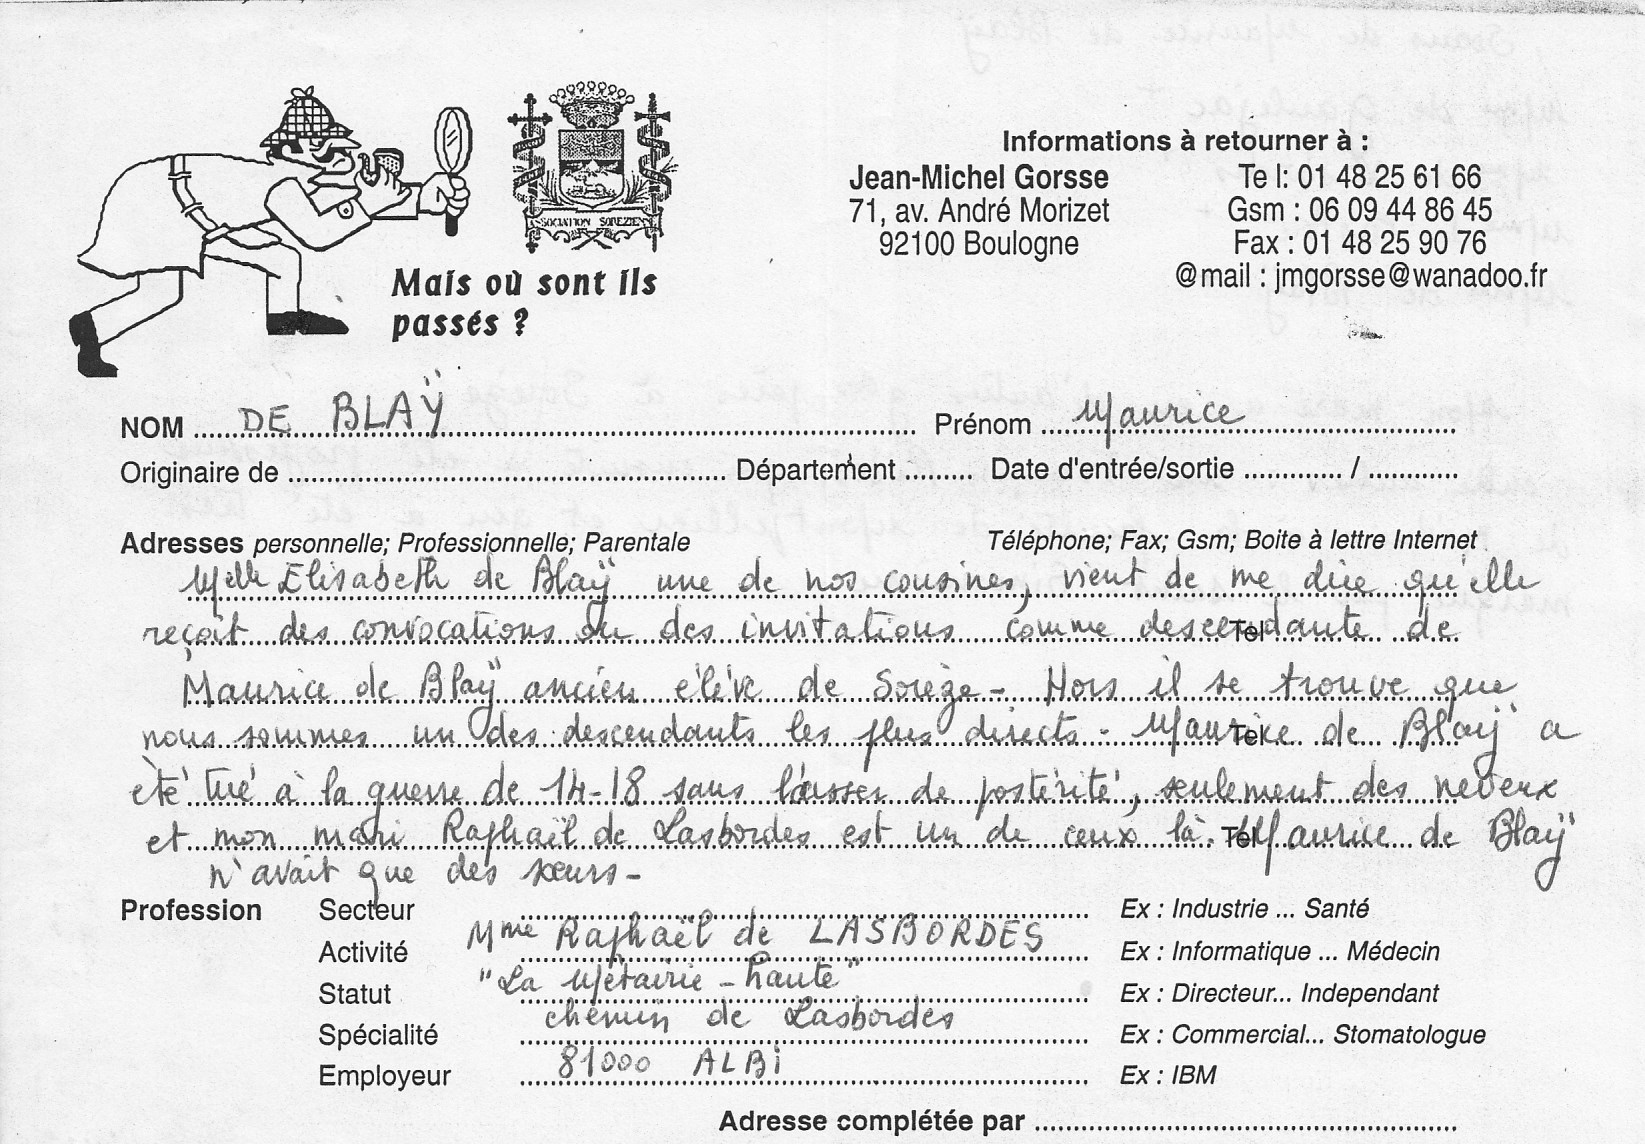 ASSOCIATION SORÉZIENNE
Mais où sont ils
passés ?
Informations à retourner à :
Jean-Michel Gorsse
71, av. André Morizet
92100 Boulogne
Te l: 01 48 25 61 66
Gsm : 06 09 44 86 45
Fax : 01 48 25 90 76
@mail : jmgorsse@wanadoo.fr
NOM DE BLAŸ Prénom Maurice
Originaire de Département Date d'entrée/sortie /
Adresses personnelle; Professionnelle; Parentale Téléphone; Fax; Gsm; Boite à lettre Internet
Melle Elisabeth de Blaÿ une de nos cousines, vient de me dire qu'elle
reçoit des convocations ou des invitations comme descendante de Tel
Maurice de Blaÿ ancien élève de Sorèze - Hors il se trouve que
nous sommes un des descendants les plus directs - Maurice de Blaÿ a Tel
été tué à la guerre de 14-18 sans laisser de postérité, seulement des neveux
et mon mari Raphaël de Lasbordes est un de ceux là. Maurice de Blaÿ Tel
n'avait que des soeurs -
Profession Secteur Ex : Industrie ... Santé
Activité Mme Raphaël de LASBORDES Ex : Informatique ... Médecin
Statut "La Métairie - haute" Ex : Directeur... Independant
Spécialité chemin de Lasbordes Ex : Commercial... Stomatologue
Employeur 81000 ALBi Ex : IBM
Adresse complétée par